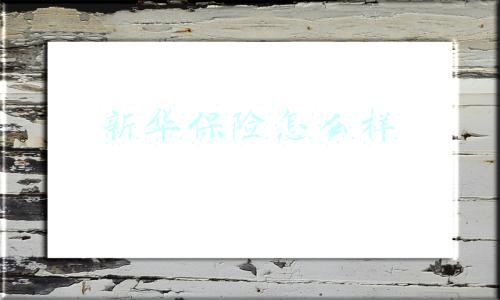 新华保险怎么样